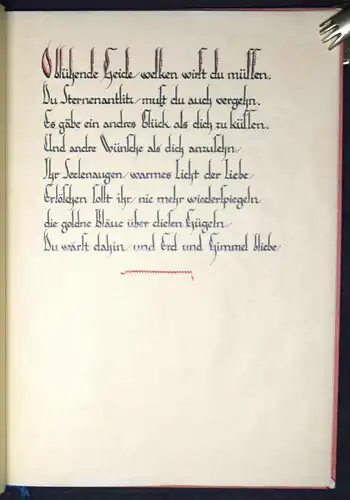 O blühende Heide, welken wirst du müssen.
Du Sternenantlitz, mußt du auch vergehn.
Es gäbe ein andres Glück als dich zu küssen.
Und andre Wünsche als dich anzusehn
Ihr Seelenaugen, warmes Licht der Liebe
Erlöschen sollt ihr, nie mehr wiederspiegeln
die goldne Bläue über diesen Hügeln
Du wärst dahin, und Erd und Himmel bliebe